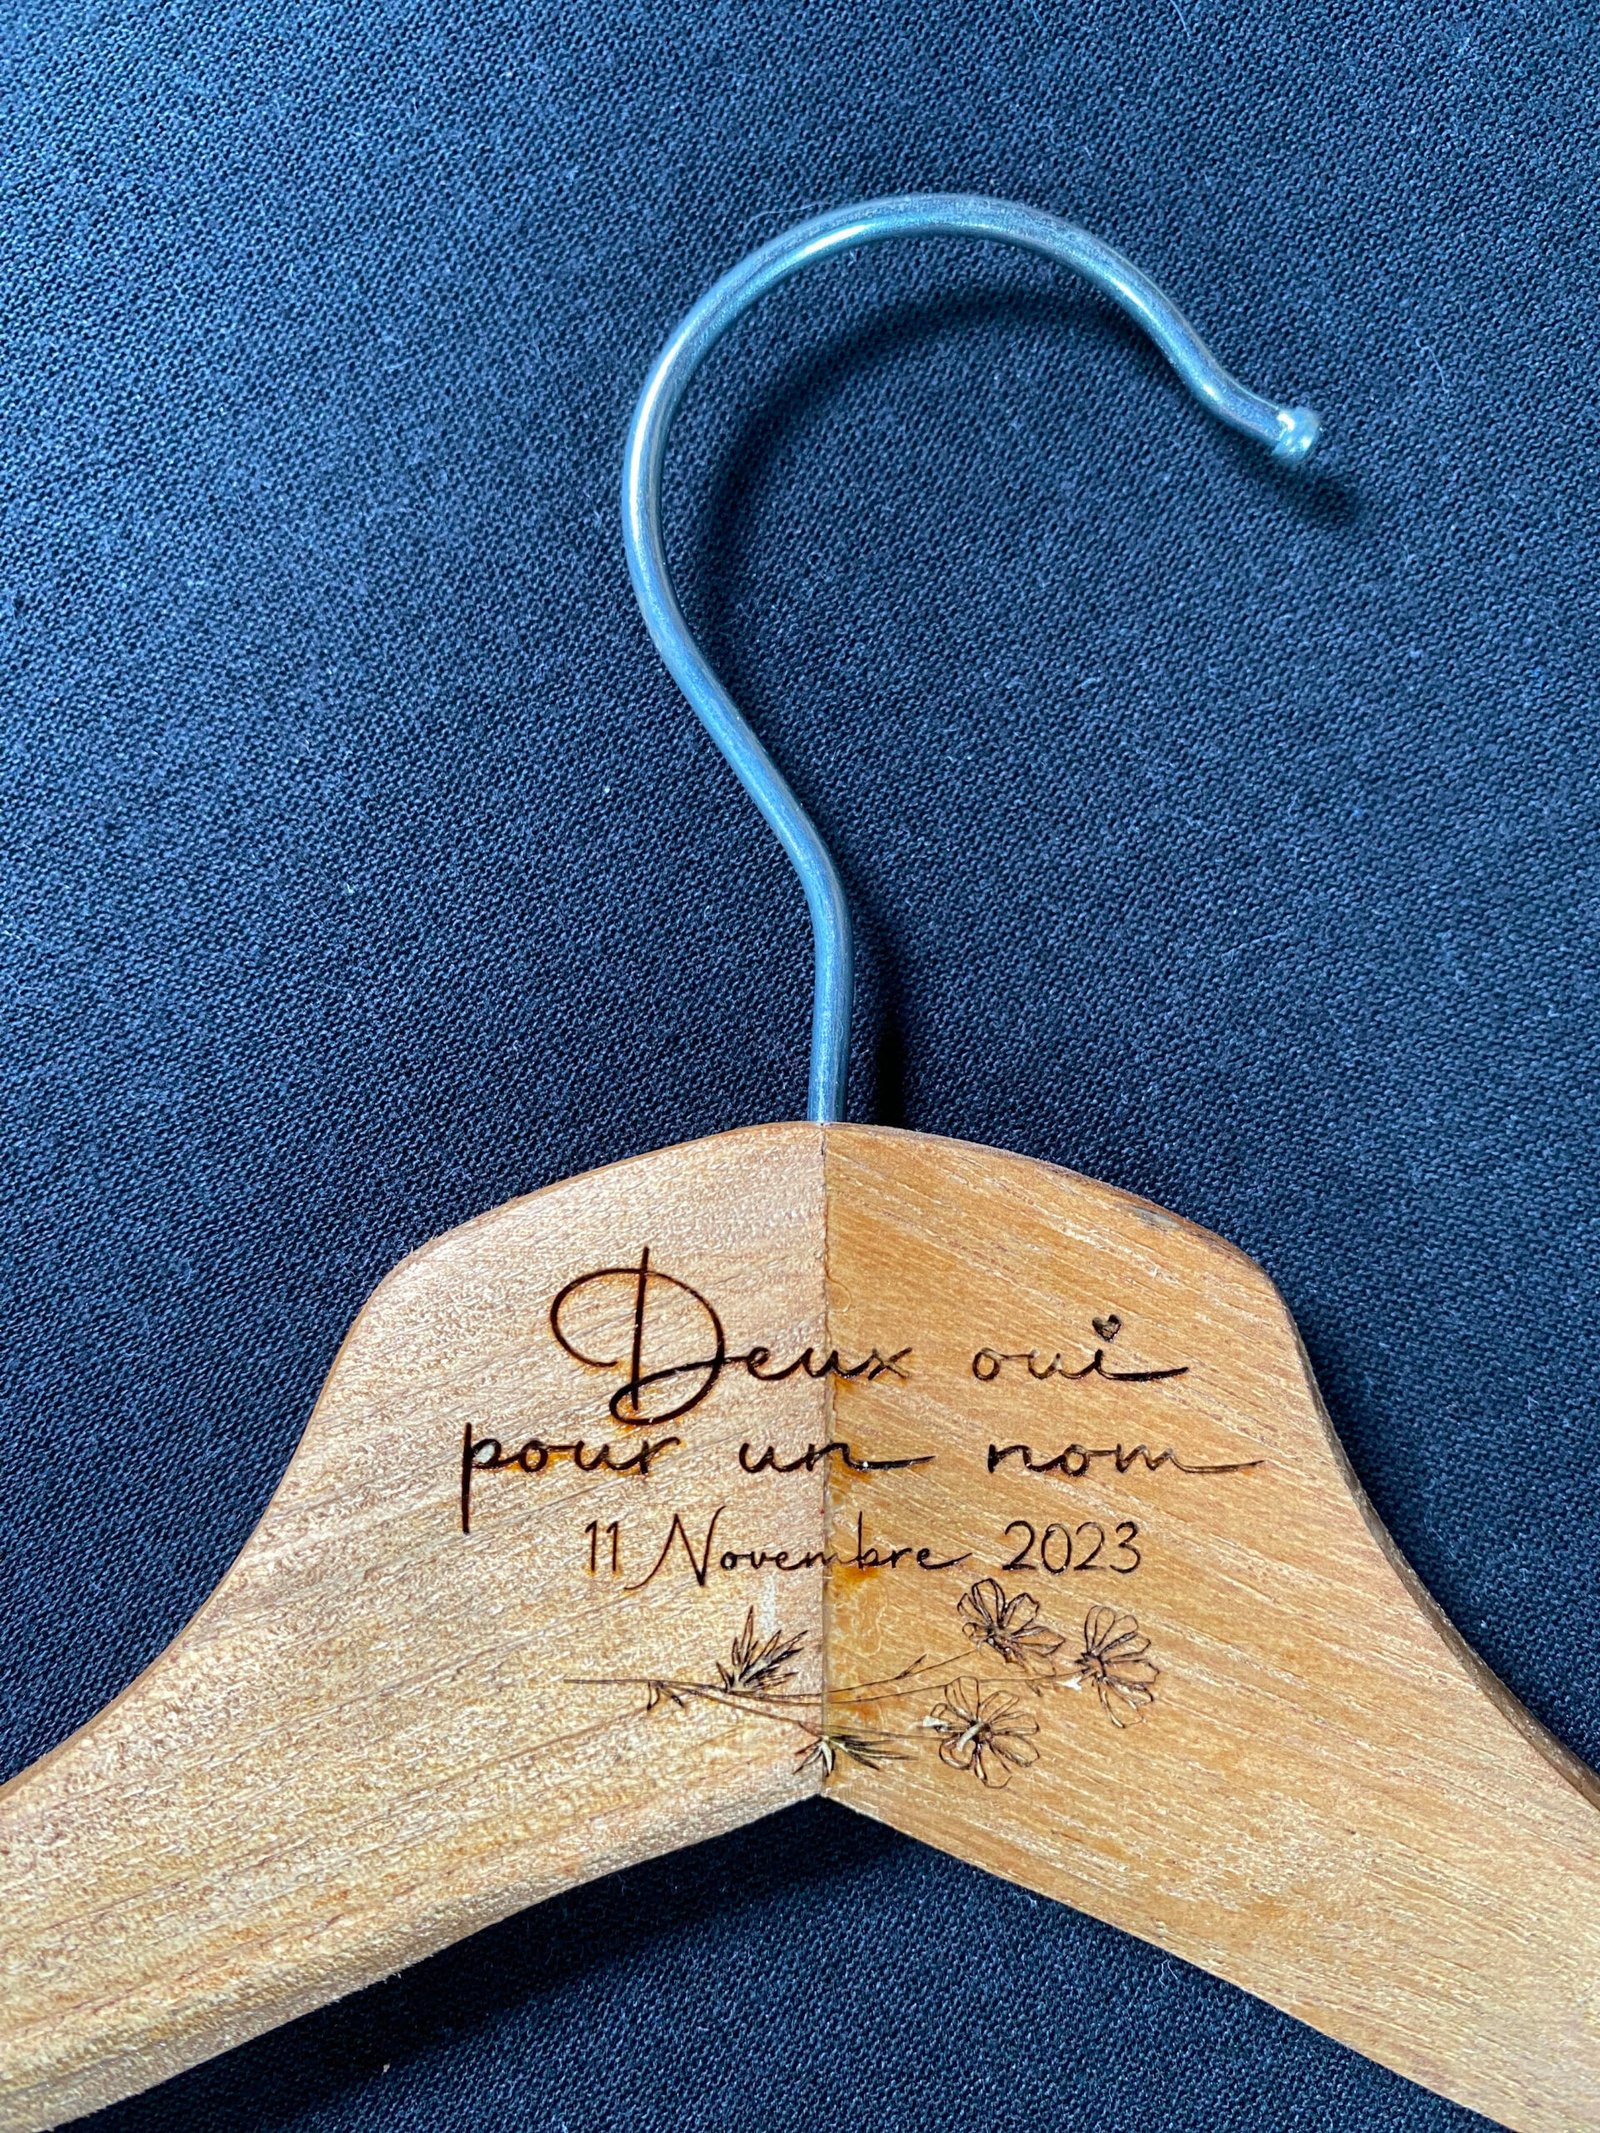 Deux oui
pour un nom
11 Novembre 2023